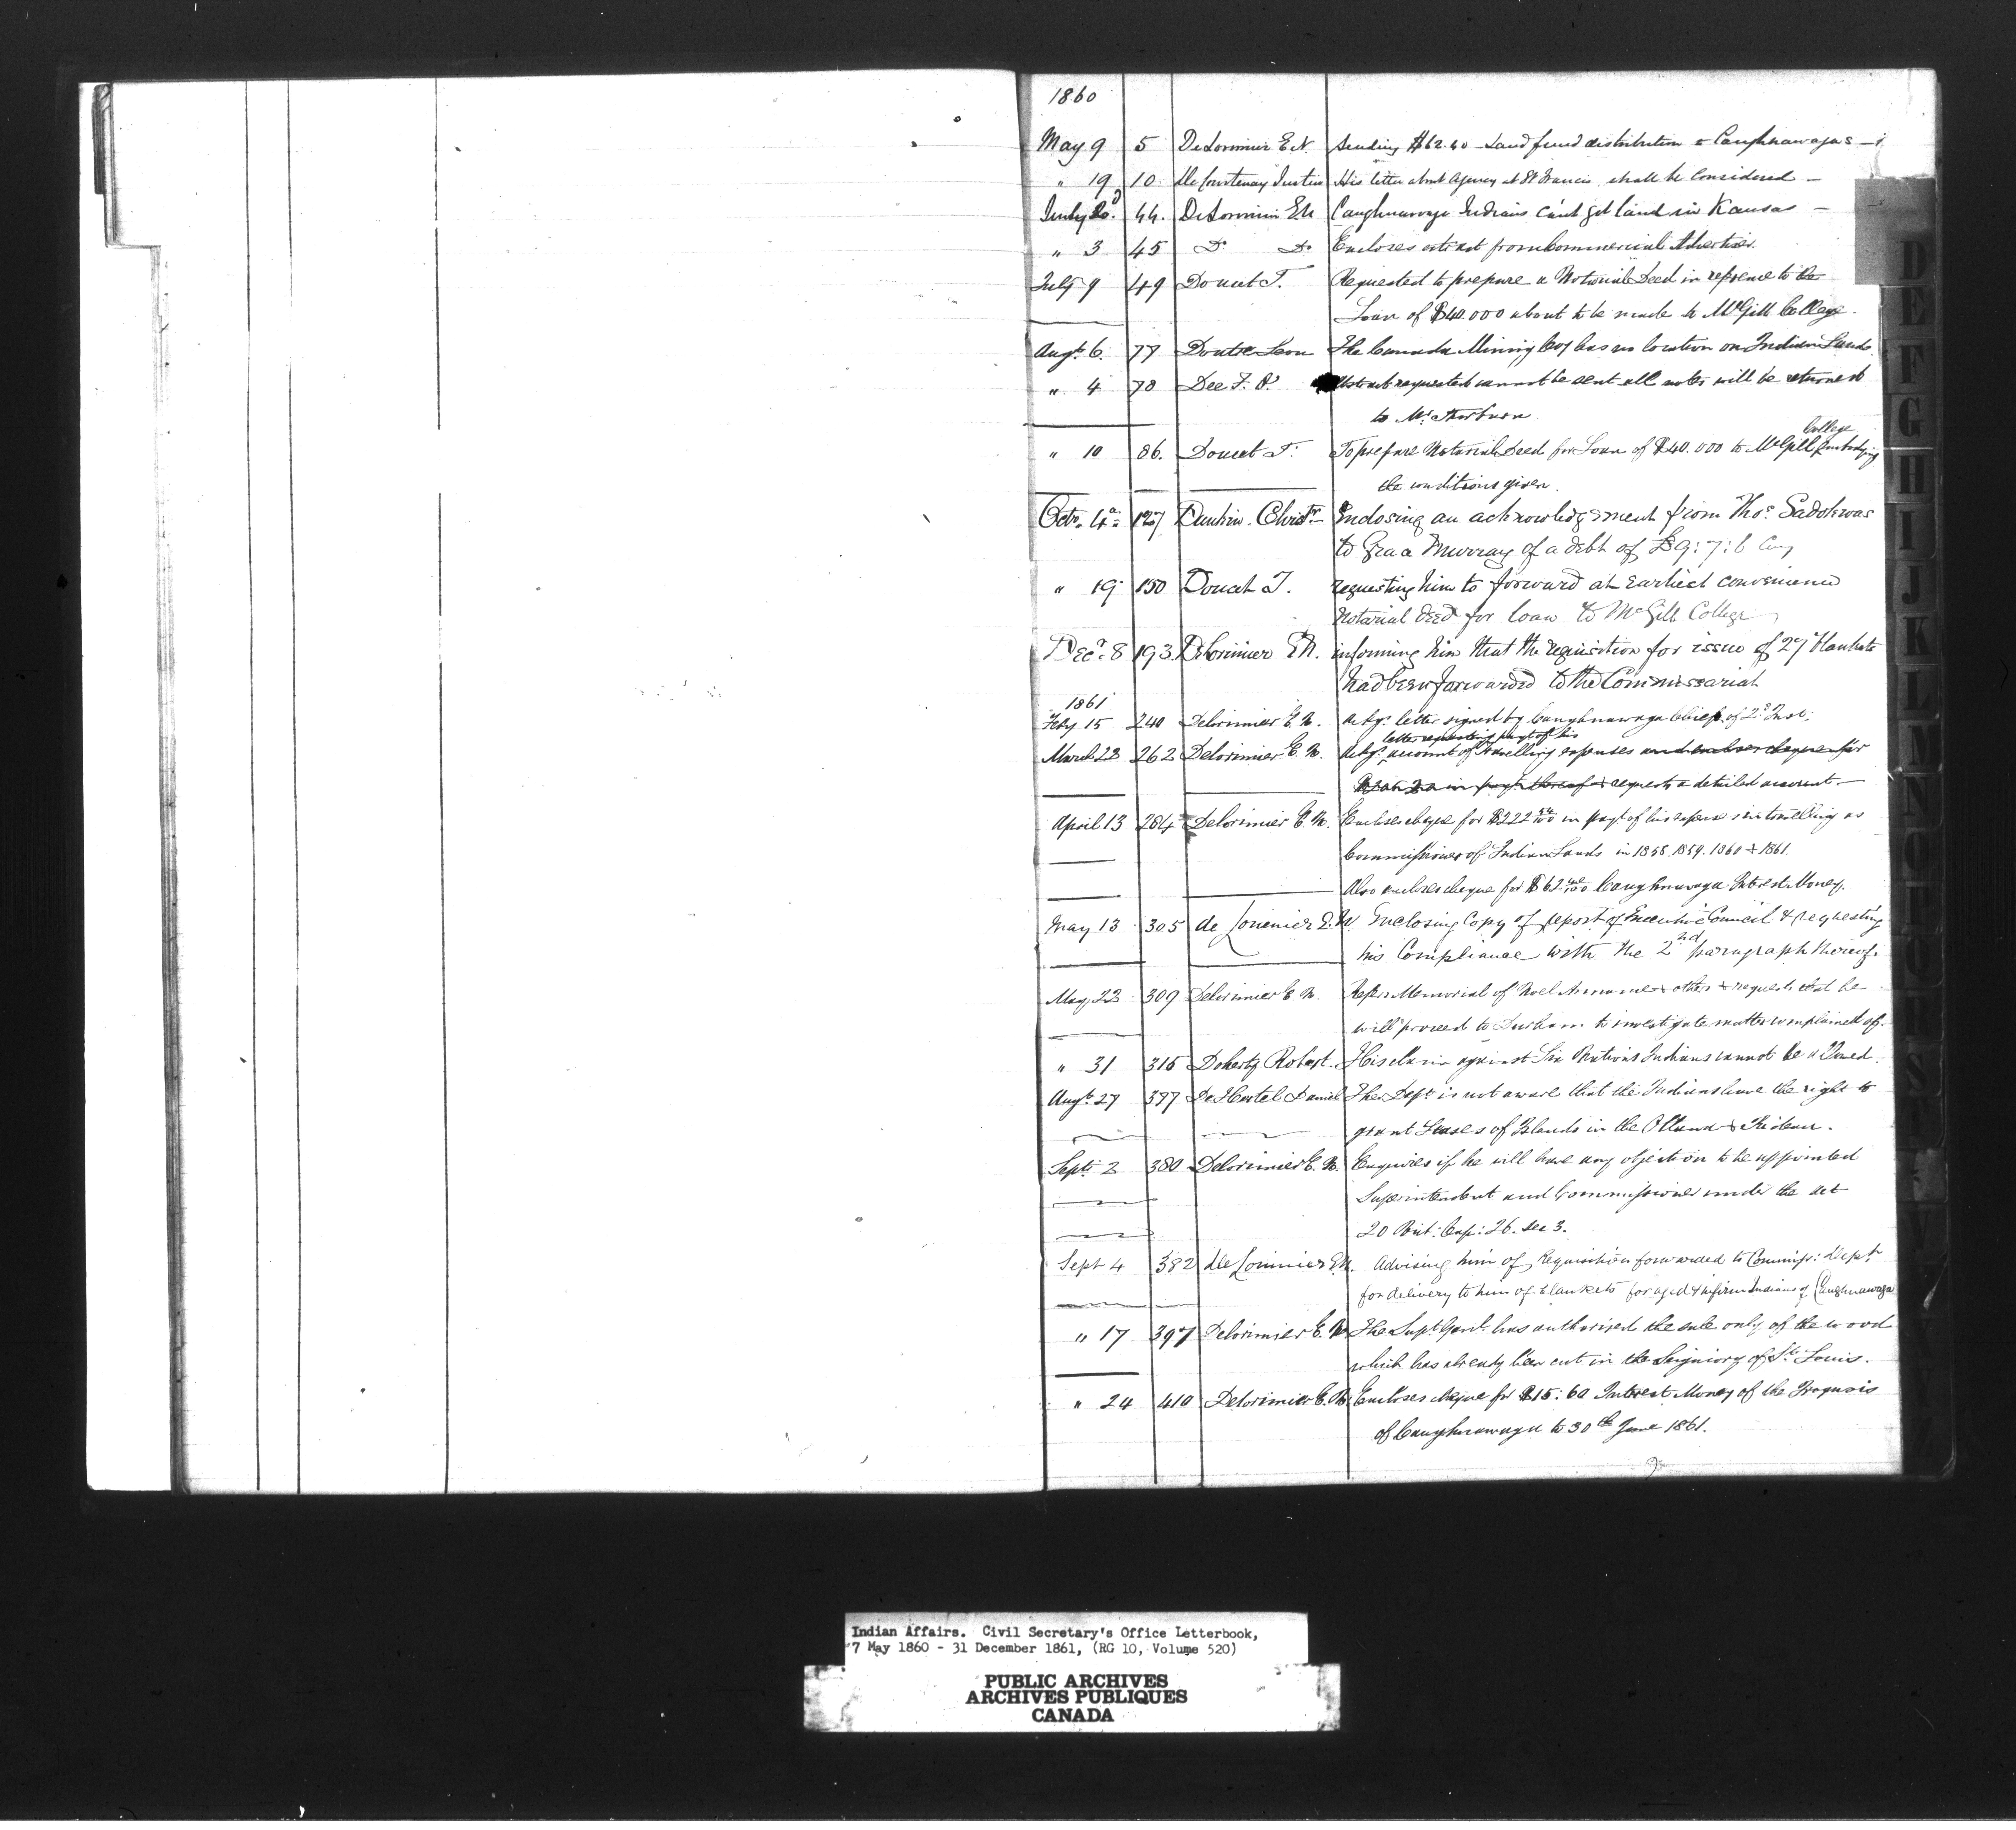 1860
May 9 5 DeLorimier E.N. Sending $62.40 Land fund distribution to Caughnawagas
" 19 10 De Courtenay Justin His letter about Agency at St Francis shall be Considered
July 44. DeLorimier E.N. Caughnawaga Indians can't get land in Kansas
" 3 45 Do Do Encloses extract from Commercial Advertiser.
July 9 49 Doucet T. Requested to prepare a Notarial Deed in reference to the
Loan of $40.000 about to be made to McGill College.
Augt. 6. 77 Doutre Leon The Canada Mining Coy has no location on Indian Lands.
" 4 78 Dee F. O. Abstract requested cannot be sent all notes will be returned
to Mr. Thorburn.
" 10 86. Doucet T. To prepare Notarial Deed for Loan of $40.000 to McGill College Embodying
the conditions given.
Octr. 4th 127 Christr. Enclosing an acknowledgement from Thos. Sadokwas
to Murray of a debt of £9:7:6 Cuy
" 19 150 Doucet T. requesting him to forward at Earliest convenience
Notarial Deed for loan to McGill College
Decr. 8 193. DeLorimier E.N. informing him that the requisition for issue of 27 Blankets
had been forwarded to the Commissariat
1861
Feby 15 240 Delorimier E. N. Ackgs. letter signed by Caughnawaga Chiefs of 2d Inst.
letter requesting payt of his
March 23 262 Delorimier E. N. Ackgs. account of travelling expenses and encloses cheque for
in payt. thereof & requests a detailed account.
April 13 284 Delorimier E. N. Encloses cheque for $222 54/100 in payt of his expenses in travelling as
Commissioner of Indian Lands in 1858. 1859. 1860 & 1861.
Also encloses cheque for $62 40/100 Caughnawaga Interest Money.
May 13 305 de Lorimier E.N. Enclosing Copy of report of Executive Council & requesting
his Compliance with the 2nd paragraph thereof.
May 22 309 Delorimier E. N. Refers Memorial of Noel Annance & others & requests that he
will proceed to Durham to investigate matter complained of.
" 31 315 Doherty Robert. His claim against Six Nations Indians cannot be allowed.
Augt. 27 377 De Hertel Daniel The Dept. is not aware that the Indians have the right to
grant Leases of Islands in the Ottawa & Rideau.
Sept. 2 380 Delorimier E. N. Enquires if he will have any objection to be appointed
Superintendent and Commissioner under the act
20 Vict: Cap: 26. Sec 3.
Sept 4 382 De Lorimier E.N. Advising him of Requisition forwarded to Commiss: Dept.
for delivery to him of blankets for aged & infirm Indians of Caughnawaga
" 17 397 Delorimier E. N. The Supt Genl. has authorized the sale only of the wood
which has already been cut in the Seigniory of St. Louis.
" 24 410 Delorimier E. N. Encloses cheque for $15:60 Interest Money of the Iroquois
of Caughnawaga to 30th June 1861.
D
E
F
G
H
I
J
K
L
M
N
O
P
Q
R
S
V
Indian Affairs. Civil Secretary's Office Letterbook,
7 May 1860 - 31 December 1861, (RG 10, Volume 520)
PUBLIC ARCHIVES
ARCHIVES PUBLIQUES
CANADA